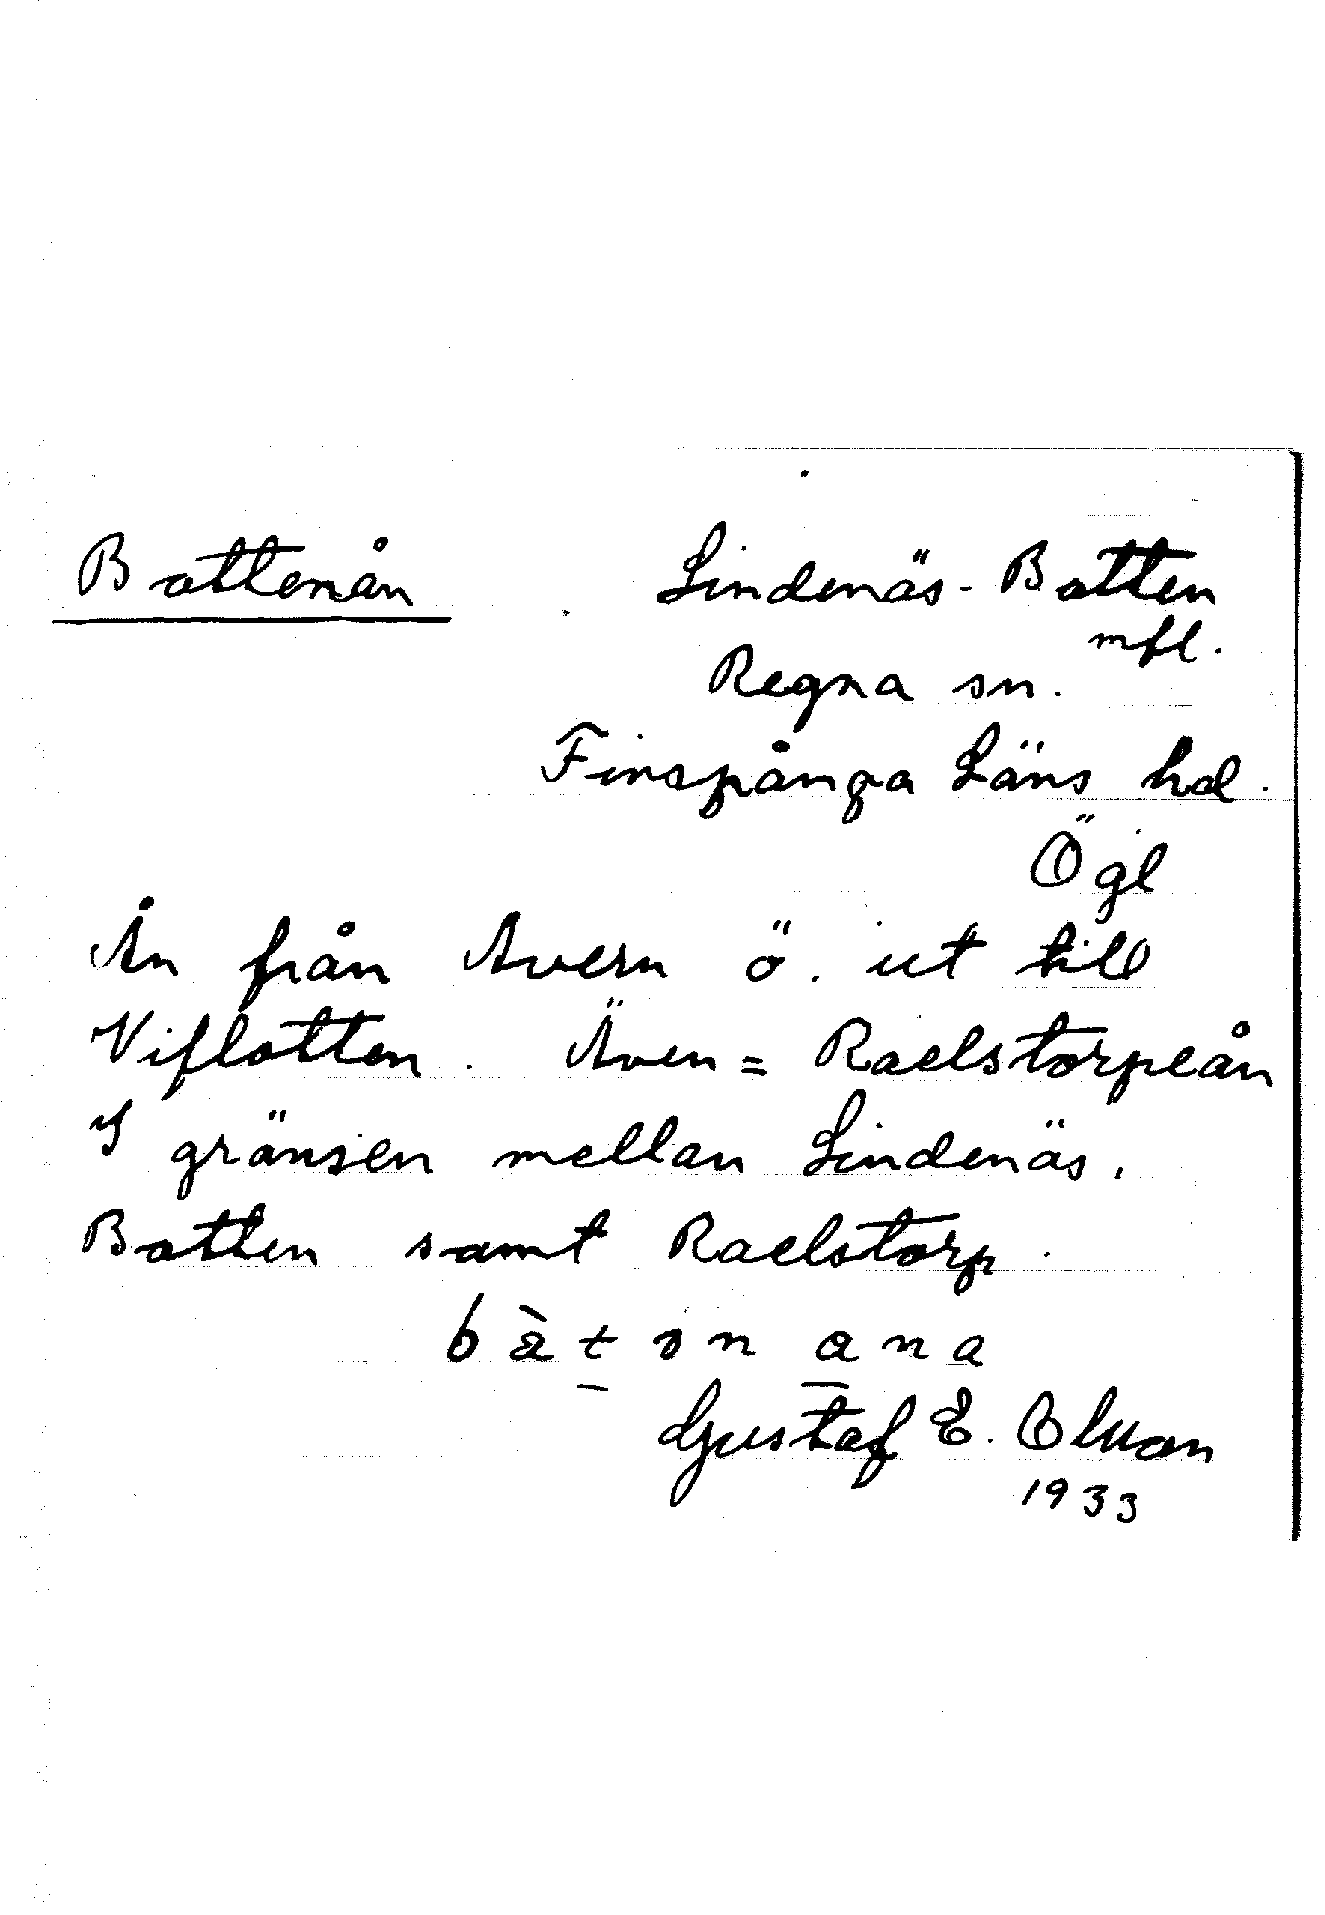 Bottenån
Lindenäs-Botten
mfl.
Regna sn.
Finspånga Läns hd.
Ögl
Ån från Avern ö. ut till
Viflotten. Även = Raelstorpeån
I gränsen mellan Lindenäs,
Botten samt Raelstorp.
Gustaf E.
1933